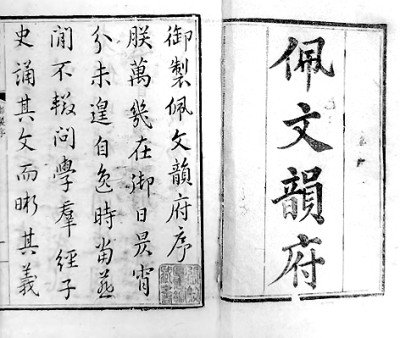 佩文韻府
御製佩文韻府序
朕萬幾在御日昃宵
分未遑自逸時當燕
閒不輟問學羣經子
史誦其文而晰其義